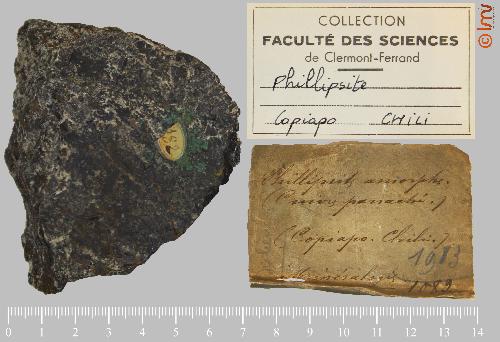 COLLECTION
FACULTÉ DES SCIENCES
de Clermont-Ferrand
Phillipsite
Copiapo CHILI
© lmv
Phillipsite amorphe.
(Cuivre panaché.)
(Copiapo. Chili.)
1983
0 1 2 3 4 5 6 7 8 9 10 11 12 13 14